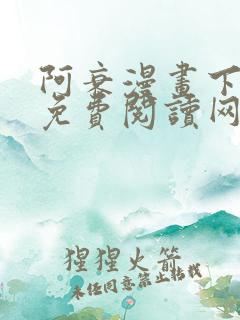 阿衰漫畫下
免費閱讀网
猩猩火箭
未任同意禁止转载